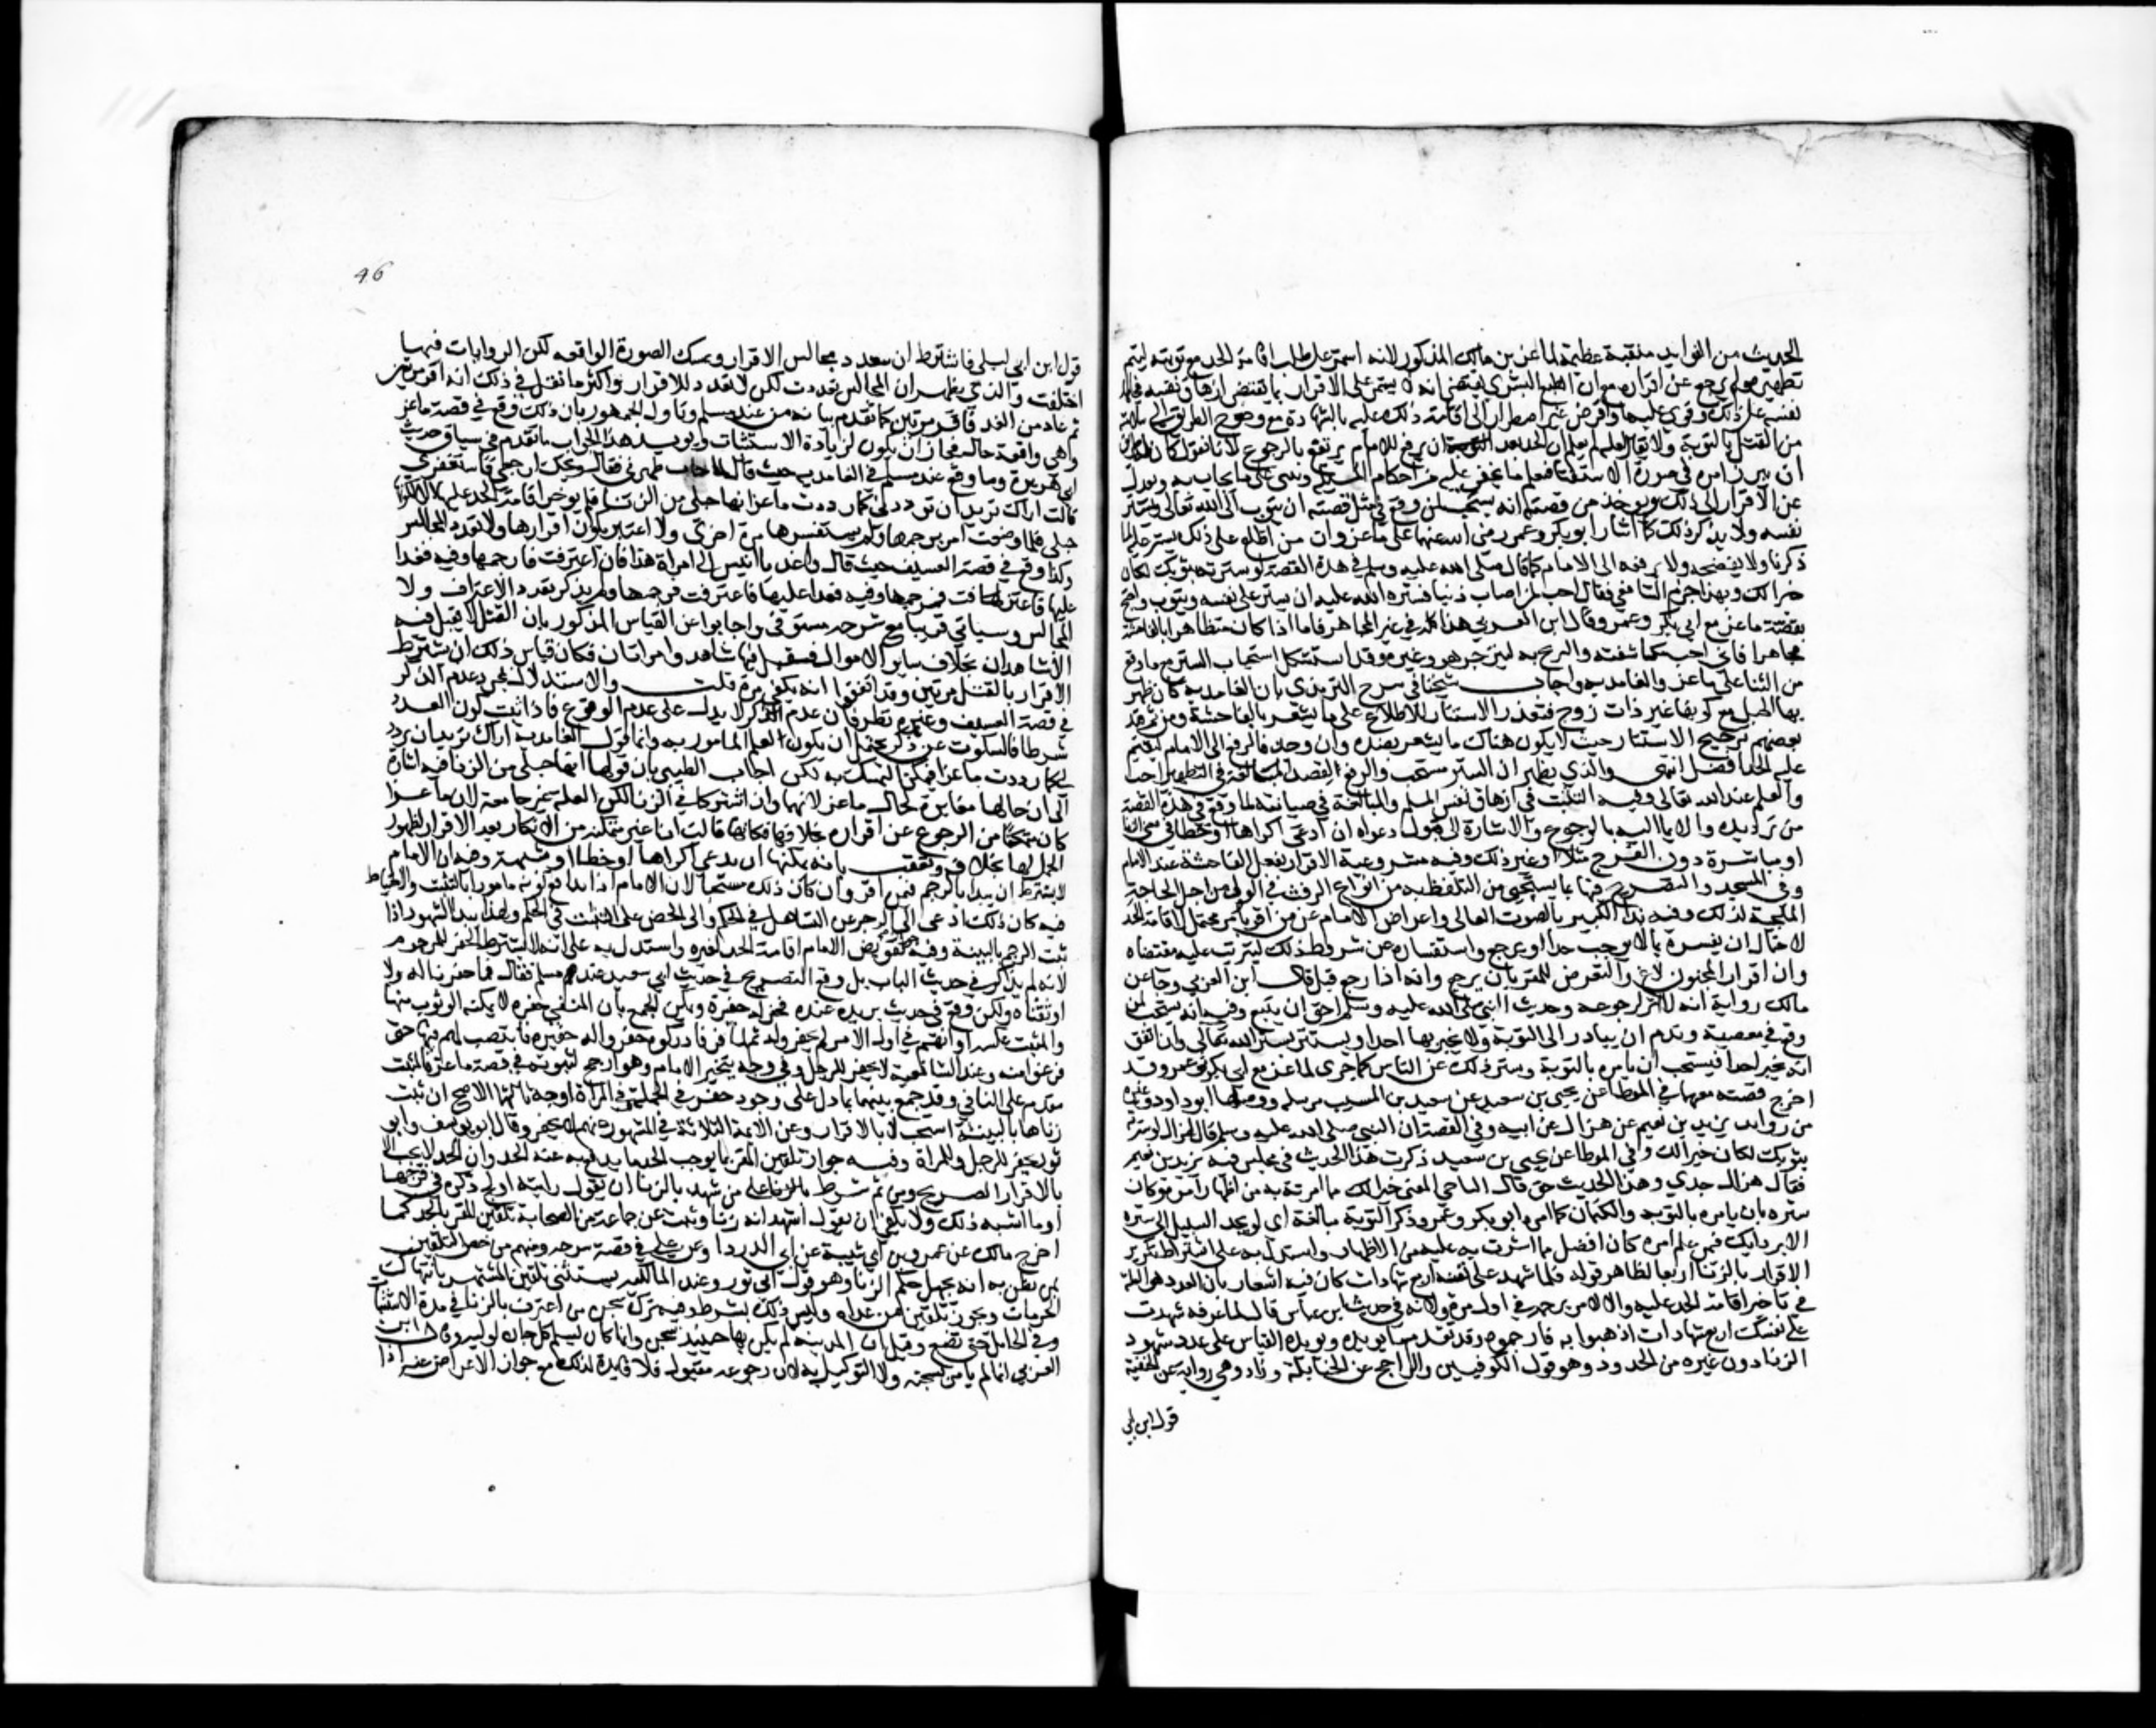 الحديث من الفوايد منقبة عظيمة لماعز بن مالك المذكور لانه استمر على طلب اقامة الحد مع توبته ليتم
تطهيره ولم يرجع عن اقراره مع ان الطبع البشري يقتضي انه لا يستمر على الاقرار بما يقتضي ازهاق نفسه فجاهد
نفسه على ذلك وقوي عليها واقر من غير اضطرار الى اقامة ذلك عليه بالشهادة مع وضوح الطريق الى سلامته
من القتل بالتوبة ولا يقال لعله لم يعلم ان الحد بعد ان يرفع للامام يرتفع بالرجوع لانا نقول كان له طريق
ان يبرز امره في صورة الاستفتا فيعلم ما يخفى عليه من احكام المسئلة ويبني على ما يجاب به ويعدل
عن الاقرار الى ذلك ويوخذ من قصته انه يستحب لمن وقع في مثل قصته ان يتوب الى الله تعالى ويستر
نفسه ولا يذكر ذلك كما اشار ابو بكر وعمر رضي الله عنهما على ماعز وان من اطلع على ذلك يستر عليه لما
ذكرنا ولا يفضحه ولا يرفعه الى الامام كما قال صلى الله عليه وسلم في هذه القصة لو سترته بثوبك لكان
خيرا لك وبهذا جزم الشافعي فقال احب لمن اصاب ذنبا فستره الله عليه ان يستر على نفسه ويتوب واحتج
بقصة ماعز مع ابي بكر وعمر وقال ابن العربي هذا كله في غير المجاهر فاما اذا كان متظاهرا بالفاحشة
مجاهرا فاني احب مكاشفته والتبريح به لينزجر هو وغيره وقد استشكل استحباب الستر مع ما وقع
من الثنا على ماعز والغامدية واجاب شيخنا في شرح الترمذي بان الغامدية كان ظهر
بها الحبل مع كونها غير ذات زوج فتعذر الاستتار للاطلاع على ما يشعر بالفاحشة ومن ثم قيد
بعضهم ترجيح الاستتار حيث لا يكون هناك ما يشعر بضده وان وجد فالرفع الى الامام ليقيم
عليه الحد افضل انتهى والذي يظهر ان الستر مستحب والرفع لقصد المبالغة في التطهير احب
والعلم عند الله تعالى وفيه التثبت في ازهاق نفس المسلم والمبالغة في صيانته لما وقع في هذه القصة
من ترديده والايما اليه بالرجوع والاشارة الى قبول دعواه ان ادعى اكراها او خطا في معنى الزنا
او مباشرة دون الفرج مثلا او غير ذلك وفيه مشروعية الاقرار بفعل الفاحشة عند الامام
وفي المسجد والتصريح فيها بما يستحيى من التلفظ به من انواع الرفث في القول من اجل الحاجة
الملجية لذلك وفيه نداء الكبير بالصوت العالي واعراض الامام عن من اقر بامر محتمل لاقامة الحد
لاحتمال ان يفسره بما لا يوجب حدا او يرجع واستفساره عن شروط ذلك ليترتب عليه مقتضاه
وان اقرار المجنون لاغ والتعريض للمقر بان يرجع وانه اذا رجع قبل قال ابن العربي وجاء عن
مالك رواية انه لا اثر لرجوعه وحديث النبي صلى الله عليه وسلم احق ان يتبع وفيه انه يستحب لمن
وقع في معصية وندم ان يبادر الى التوبة ولا يخبر بها احدا ويستتر بستر الله تعالى وان اتفق
انه يخبر احدا فيستحب ان يامره بالتوبة وستر ذلك عن الناس كما جرى لماعز مع ابي بكر ثم عمر وقد
اخرج قصته معهما في الموطا عن يحيى بن سعيد عن سعيد بن المسيب مرسلة ووصلها ابو داود وغيره
من رواية يزيد بن نعيم عن هزال عن ابيه وفي القصة ان النبي صلى الله عليه وسلم قال لهزال لو سترته
بثوبك لكان خيرا لك وفي الموطا عن يحيى بن سعيد ذكرت هذا الحديث في مجلس فيه يزيد بن نعيم
فقال هزال جدي وهذا الحديث حق قال الباجي المعنى خيرا لك مما امرته به من اظهار امره وكان
ستره بان يامره بالتوبة والكتمان كما امره ابو بكر وعمر وذكر التوبة مبالغة اي لو لم تجد السبيل الى ستره
الا بردايك فمن علم امره كان افضل مما اشرت به عليه من الاظهار واستدل به على اشتراط تكرير
الاقرار بالزنا اربعا لظاهر قوله فلما شهد على نفسه اربع شهادات كان فيه اشعار بان العدد هو العلة
في تاخير اقامة الحد عليه والا لامر برجمه في اول مرة ولانه في حديث ابن عباس قال لماعز قد شهدت
على نفسك اربع شهادات اذهبوا به فارجموه وقد تقدم ما يويده ويويده القياس على عدد شهود
الزنا دون غيره من الحدود وهو قول الكوفيين والراجح عن الحنابلة وزاد وهي رواية عن الحنفية
قول ابن ابي
46
قول ابن ابي ليلى فاشترط ان يتعدد مجالس الاقرار وتمسك الصورة الواقعه لكن الروايات فيها
اختلفت والذي يظهر ان المجالس تعددت لكن لا بعدد الاقرار واكثر ما نقل في ذلك انه اقر مرتين
ثم عاد من الغد فاقر مرتين كما تقدم بيانه من عند مسلم وتاول الجمهور بان ذلك وقع في قصة ماعز
وهي واقعة حال فجاز ان يكون لزيادة الاستثبات ويويد هذا الجواب ما تقدم في سياق حديث
ابي هريرة وما وقع عند مسلم في الغامدية حيث قالت لما جاءت طهرني فقال ويحك ارجعي فاستغفري
قالت اراك تريد ان ترددني كما رددت ماعزا انها حبلى من الزنا فلم يوخر اقامة الحد عليها الا لكونها
حبلى فلما وضعت امر برجمها ولم يستفسرها مرة اخرى ولا اعتبر تكرير اقرارها ولا تعدد المجالس
وكذا وقع في قصة العسيف حيث قال واغد يا انيس الى امراة هذا فان اعترفت فارجمها وفيه فغدا
عليها فاعترفت فرجمها وفيه فغدا عليها فاعترفت فرجمها ولم يذكر تعدد الاعتراف ولا
المجالس وسياتي قريبا مع شرحه مستوفى واجابوا عن القياس المذكور بان القتل لا يقبل فيه
الا شاهدان بخلاف ساير الاموال فيقبل فيها شاهد وامراتان فكان قياس ذلك ان يشترط
الاقرار بالقتل مرتين وقد اتفقوا انه يكفي مرة قلت والاستدلال بمجرد عدم الذكر
في قصة العسيف وغيره نظر فان عدم الذكر لا يدل على عدم الوقوع فاذا ثبت كون العدد
شرطا فالسكوت عن ذكره يحتمل ان يكون لعلم المامور به وانما قول الغامدية اراك تريد ان ترددني
كما رددت ماعزا فيمكن التمسك به لكن اجاب الطيبي بان قولها انها حبلى من الزنا فيه اشارة
الى ان حالها مغايرة لحال ماعز لانهما وان اشتركا في الزنا لكن العلة غير جامعة لان ماعزا
كان متمكنا من الرجوع عن اقراره بخلافها فكانها قالت انا غير متمكنة من الانكار بعد الاقرار لظهور
الحمل بها بخلافه وتعقب بانه يمكنها ان تدعي اكراها او خطا او شبهة وفيه ان الامام
لا يشترط ان يبدا بالرجم فيمن اقر وان كان ذلك مستحبا لان الامام اذا بدا مع كونه مامورا بالتثبت والاحتياط
فيه كان ذلك ادعى الى الزجر عن التساهل في الحكم والى الحض على التثبت في الحكم ولهذا يبدا الشهود اذا
ثبت الرجم بالبينة وفيه جواز تفويض الامام اقامة الحد لغيره واستدل به على انه لا يشترط الحفر للمرجوم
لانه لم يذكر في حديث الباب بل وقع التصريح في حديث ابي سعيد عند مسلم فقال فما حفرنا له ولا
اوثقناه ولكن وقع في حديث بريدة عنده فحفر له حفرة ويمكن الجمع بان المنفي حفرة لا يمكنه الوثوب منها
والمثبت عكسه او انهم في اول الامر لم يحفروا له ثم لما فر فادركوه حفروا له حفيرة فانتصب لهم فيها حتى
فرغوا منه وعند الشافعية لا يحفر للرجل وفي وجه يتخير الامام وهو ارجح لثبوته في قصة ماعز فالمثبت
مقدم على النافي وقد جمع بينهما بما دل على وجود حفر في الجملة وفي المراة اوجه ثالثها الاصح ان ثبت
زناها بالبينة استحب لا بالاقرار وعن الائمة الثلاثة في المشهور عنهم لا يحفر وقال ابو يوسف وابو
ثور يحفر للرجل وللمراة وفيه جواز تلقين المقر بما يوجب الحد ما يدفع به عنه الحد وان الحد لا يجب الا
بالاقرار الصريح ومن ثم شرط على من شهد بالزنا ان يقول رايته اولج ذكره في فرجها
او ما اشبه ذلك ولا يكفي ان يقول اشهد انه زنا وثبت عن جماعة من الصحابة تلقين المقر بالحد كما
اخرج مالك عن عمر وبن ابي شيبة عن ابي الدردا وعن علي في قصة شراحة ومنهم من خص التلقين
بمن يظن به انه يجهل حكم الزنا وهو قول ابي ثور وعند المالكية يستثنى تلقين المشتهر بانتهاك
الحرمات ويجوز تلقين من عداه وليس ذلك بشرط وفيه ترك سجن من اعترف بالزنا في مدة الاستثبات
وفي الحامل حتى تضع وقيل ان المدينة لم يكن بها حينئذ سجن وانما كان يسلم كل جان لوليه وقال ابن
العربي انما لم يامر بسجنه ولا التوكيل به لان رجوعه مقبول فلا فايدة لذلك مع جواز الاعراض عنه اذا